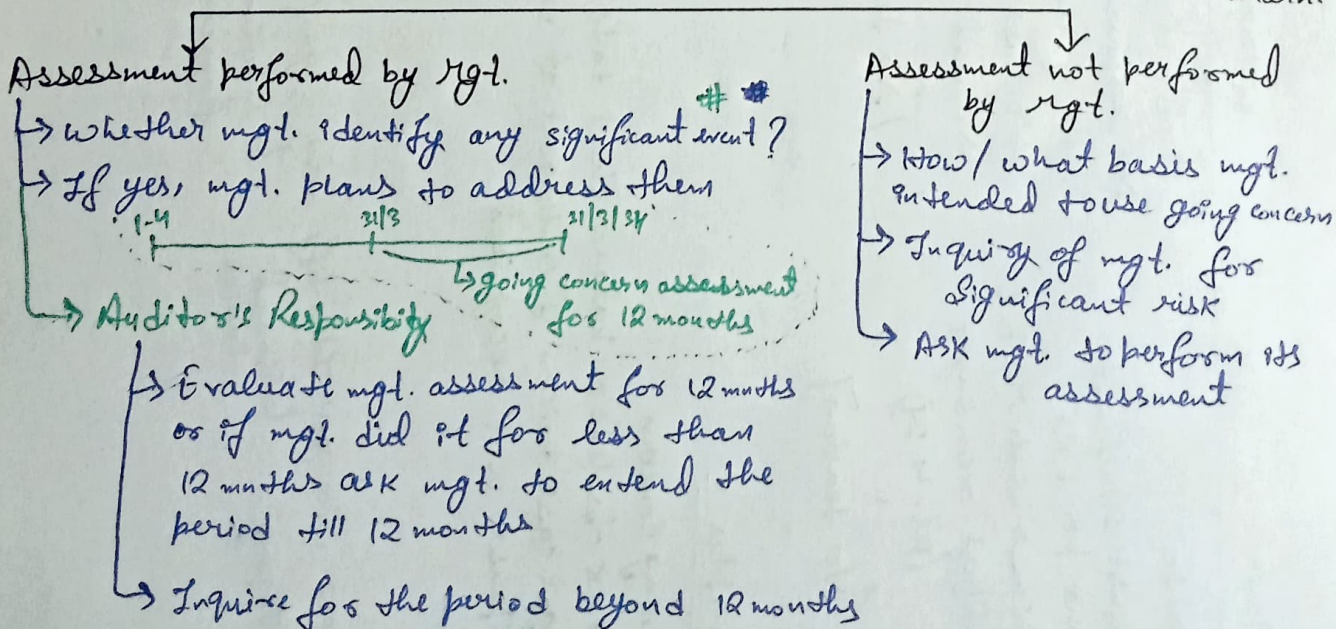 Assessment performed by mgt.
→ Whether mgt. identify any significant event? # #
→ If yes, mgt. plans to address them
1-4 31/3 31/3/34
↳ going concern assessment
for 12 months
→ Auditor's Responsibity
↳ Evaluate mgt. assessment for 12 mnths
or if mgt. did it for less than
12 mnths ask mgt. to entend the
period till 12 months
↳ Inquire for the period beyond 12 months
Assessment not performed
by mgt.
→ How/ what basis mgt.
intended to use going concern
→ Inquiry of mgt. for
Significant risk
→ ASK mgt. to perform its
assessment